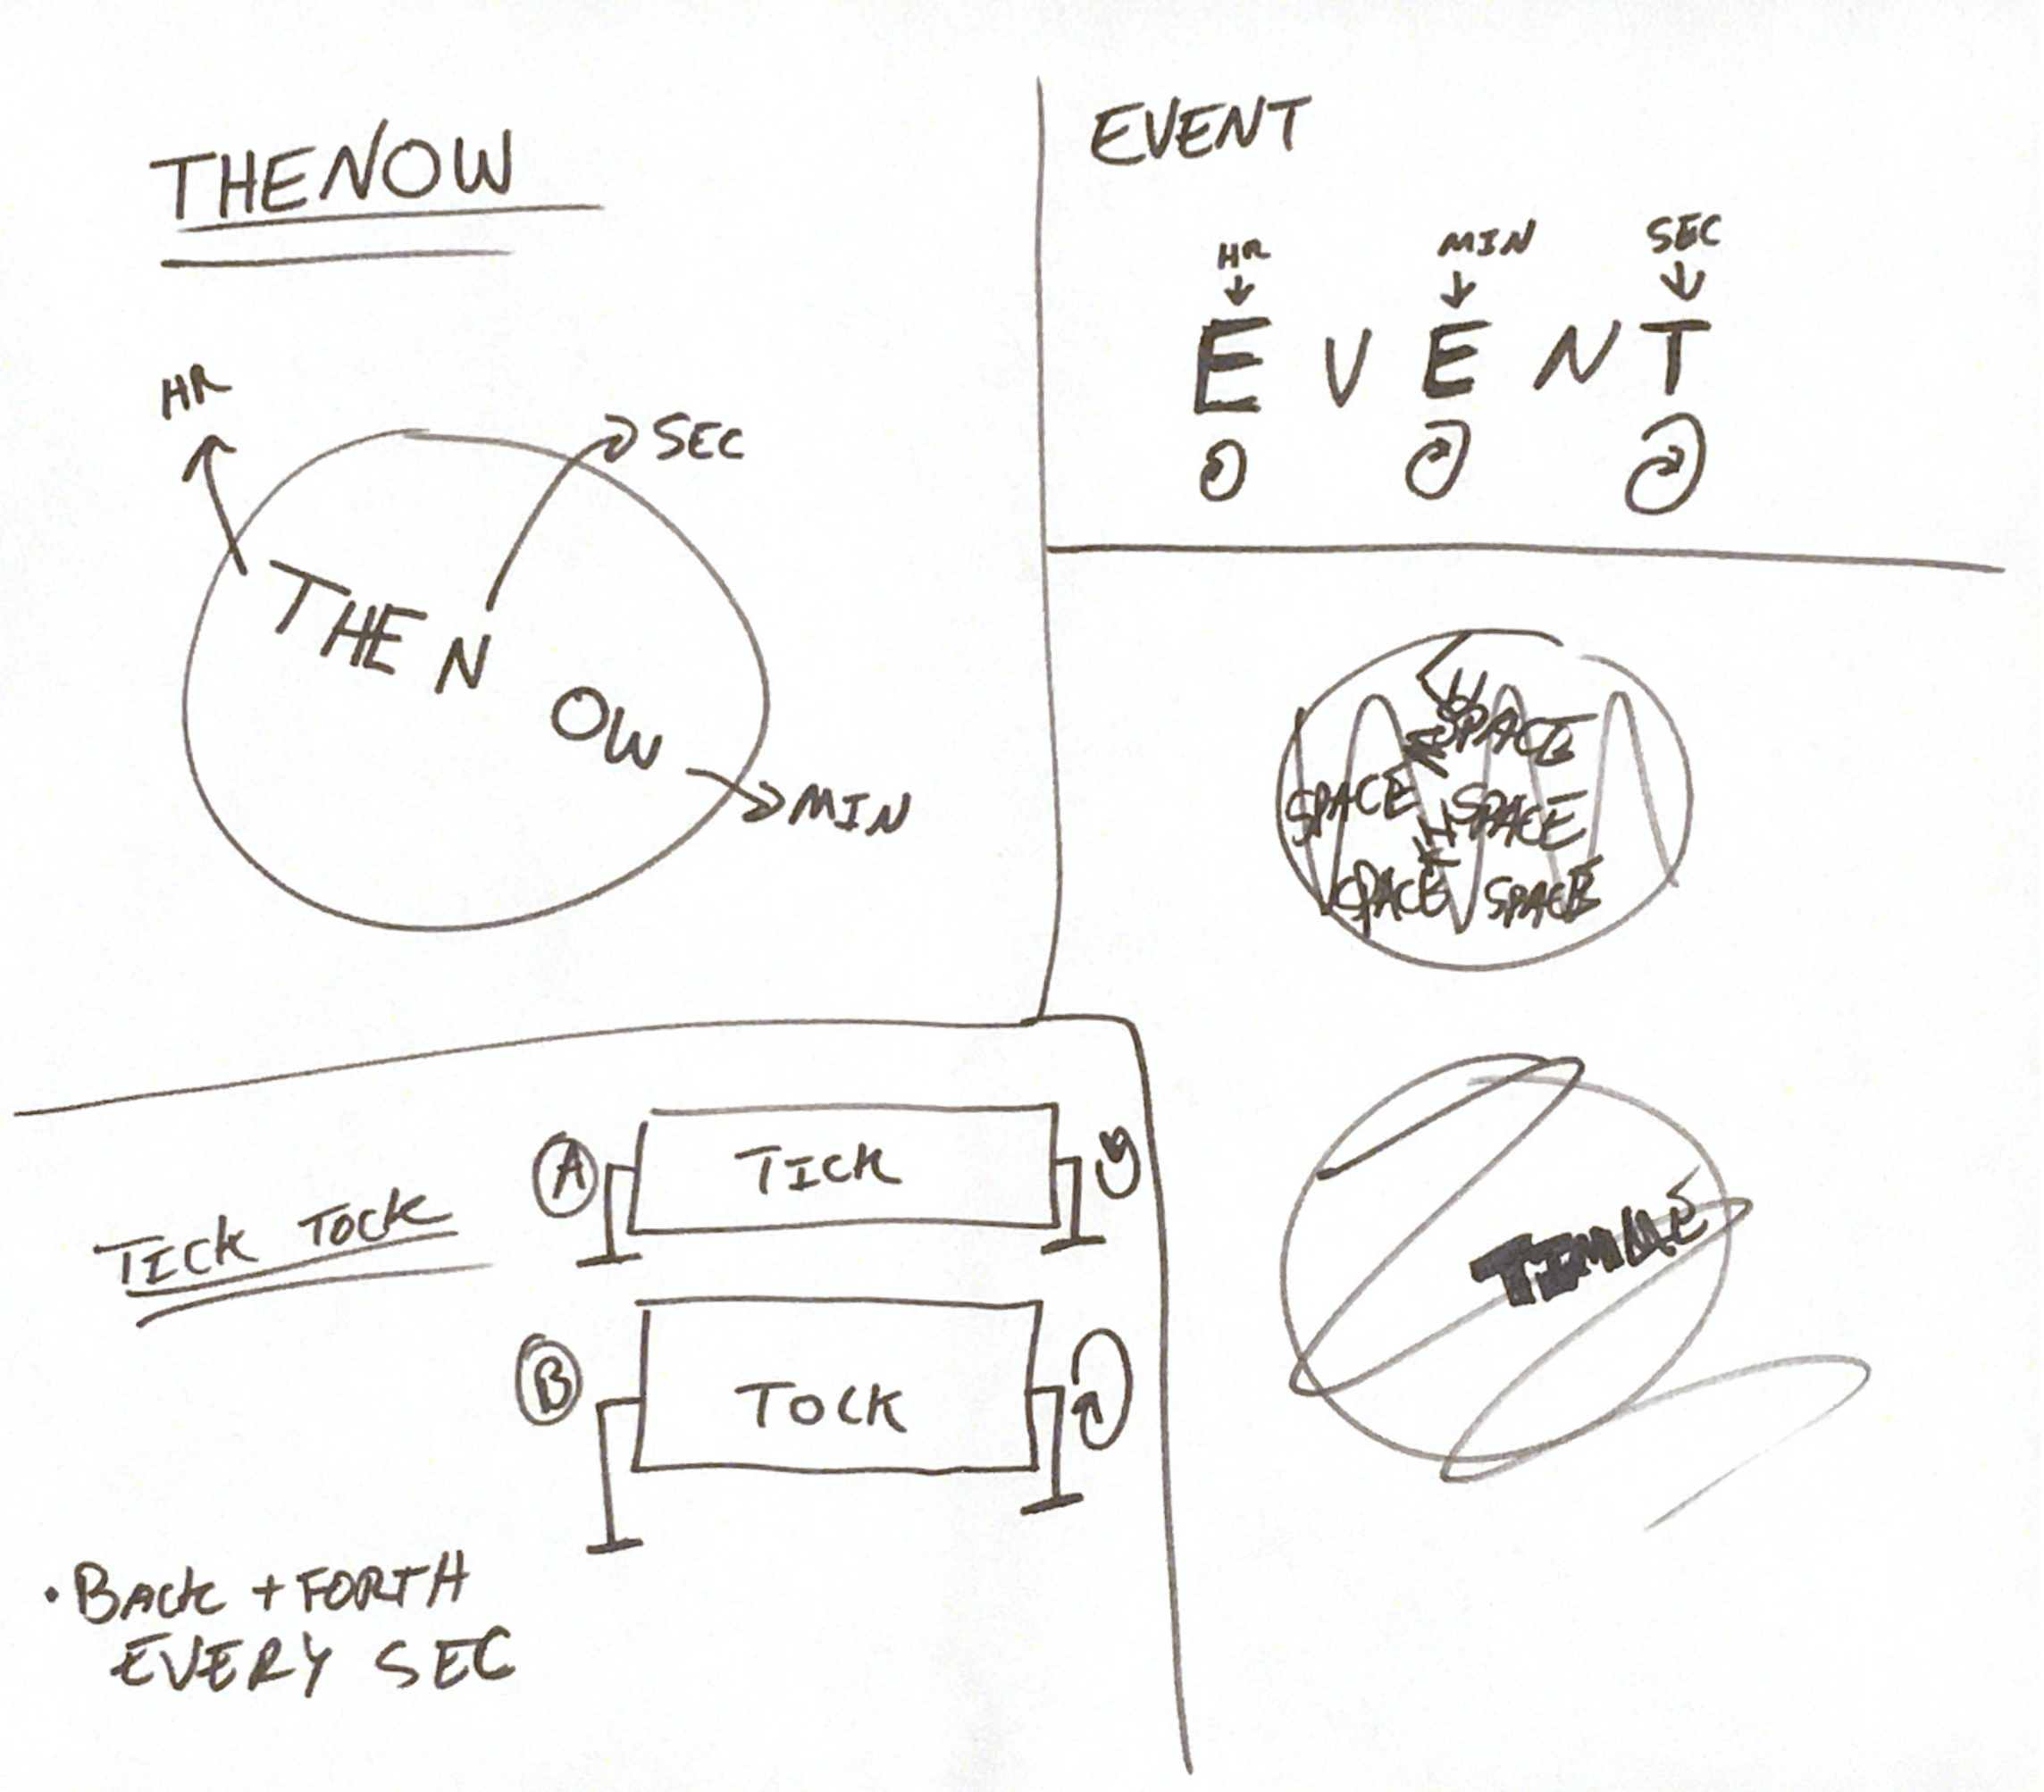 THENOW
HR
SEC
THE N
OW
MIN
EVENT
HR MIN SEC
E V E N T
SPACE
SPACE SPACE
SPACE SPACE
TIME
TICK TOCK
A TICK
B TOCK
• BACK + FORTH
EVERY SEC